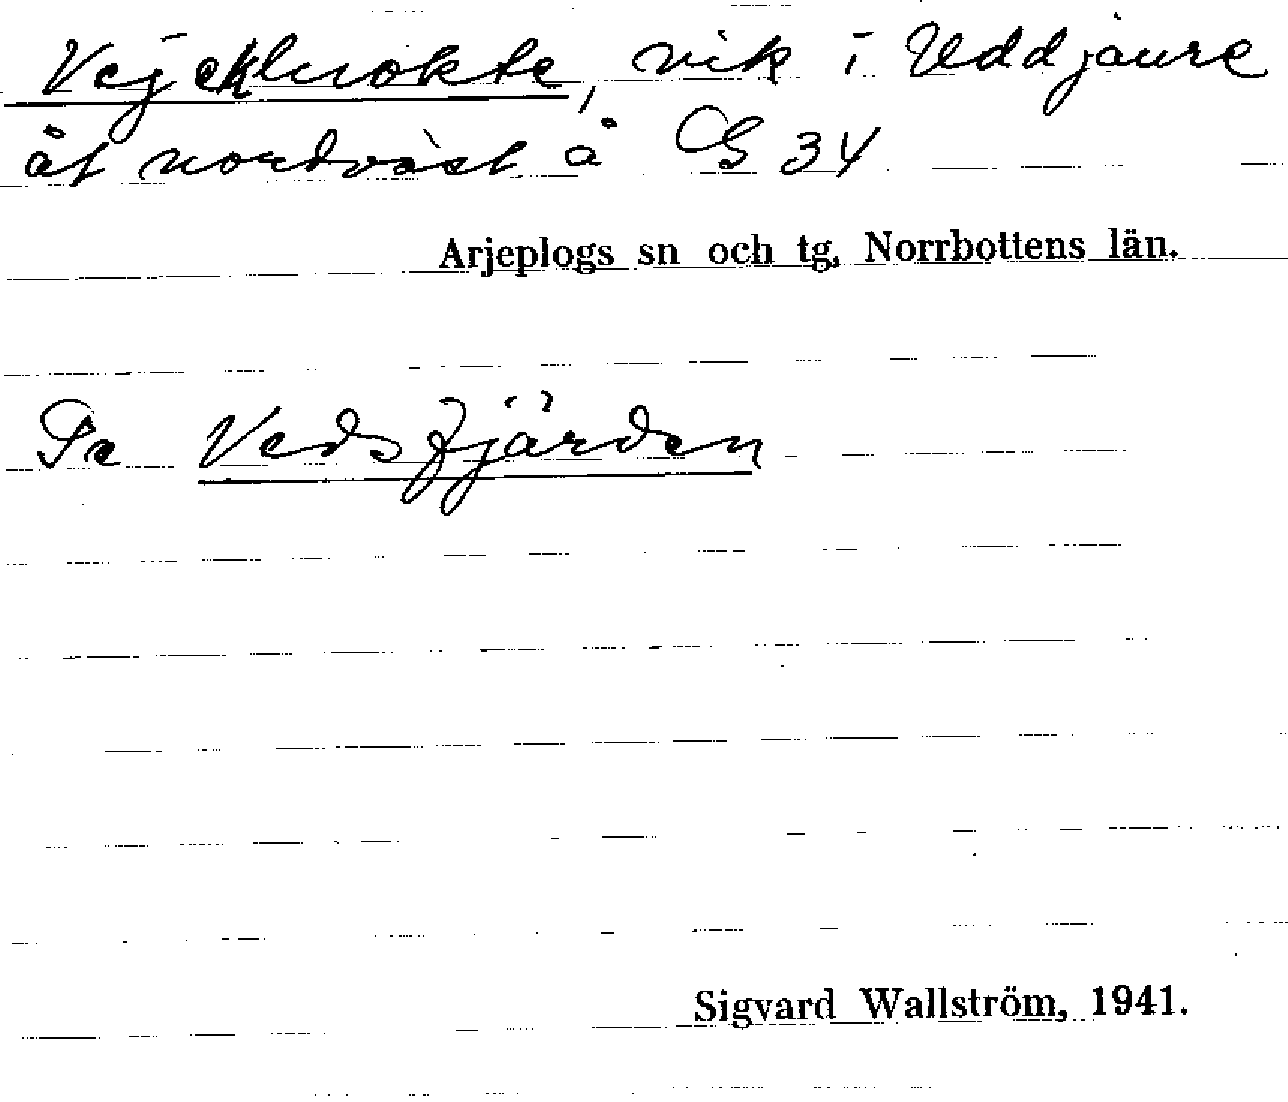 Vejekluokte, vik i Uddjaure
åt nordväst å GS 34
Arjeplogs sn och tg, Norrbottens län.
Se Vedsfjärden
Sigvard Wallström, 1941.